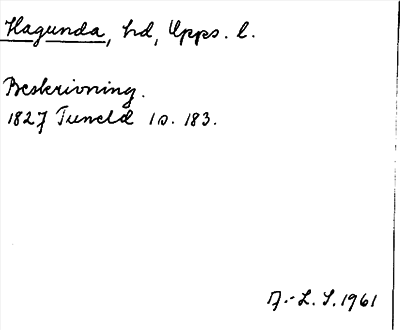 Hagunda, hd, Upps. l.
Beskrivning.
1827 Tuneld 1 s. 183.
A.-L. S. 1961